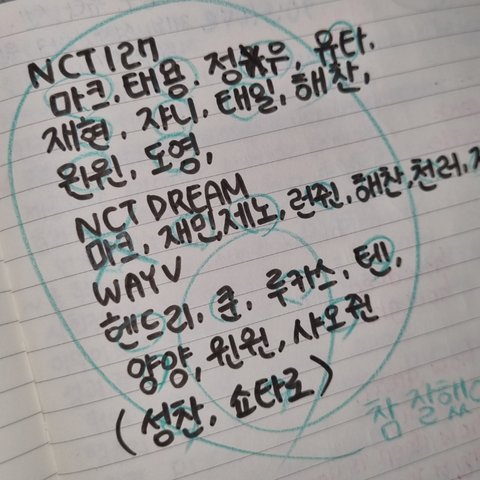 NCT127
마크, 태용, 정우, 유타,
재현, 쟈니, 태일, 해찬,
윈윈, 도영,
NCT DREAM
마크, 재민, 제노, 런쥔, 해찬, 천러,
WAYV
헨드리, 쿤, 루카스, 텐,
양양, 윈윈, 샤오쥔
(성찬, 쇼타로)
참 잘했